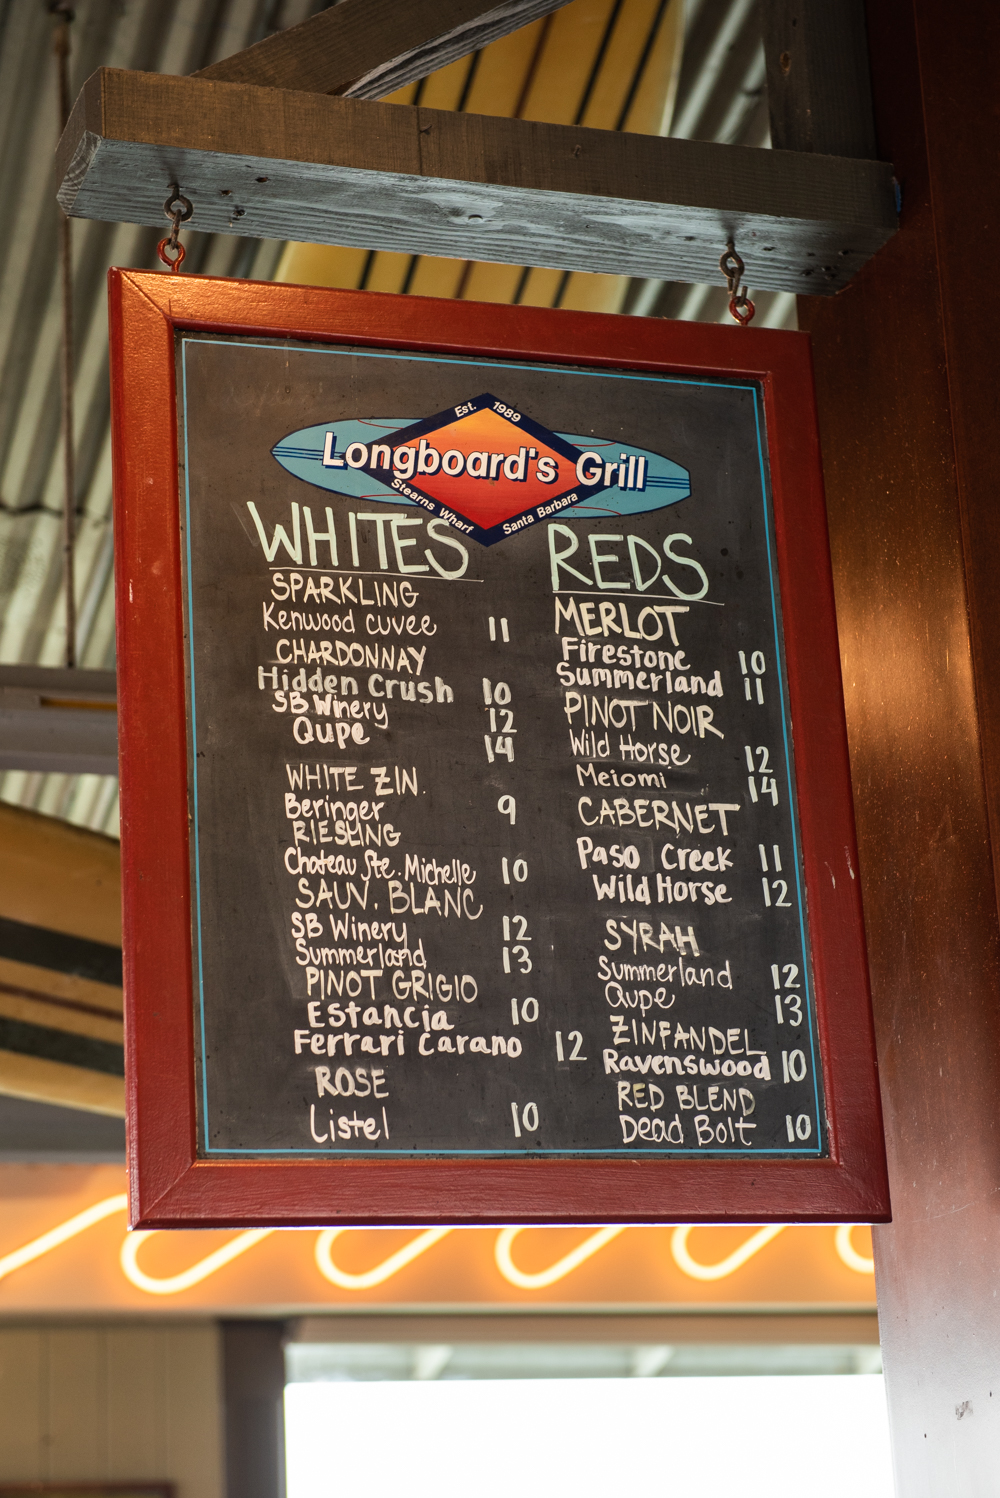 Est. 1989
Longboard's Grill
Stearns Wharf Santa Barbara
WHITES
SPARKLING
Kenwood cuvee 11
CHARDONNAY
Hidden Crush 10
SB Winery 12
Qupe 14
WHITE ZIN.
Beringer 9
RIESLING
Chateau Ste. Michelle 10
SAUV. BLANC
SB Winery 12
Summerland 13
PINOT GRIGIO
Estancia 10
Ferrari Carano 12
ROSE
Listel 10
REDS
MERLOT
Firestone 10
Summerland 11
PINOT NOIR
Wild Horse 12
Meiomi 14
CABERNET
Paso Creek 11
Wild Horse 12
SYRAH
Summerland 12
Qupe 13
ZINFANDEL
Ravenswood 10
RED BLEND
Dead Bolt 10